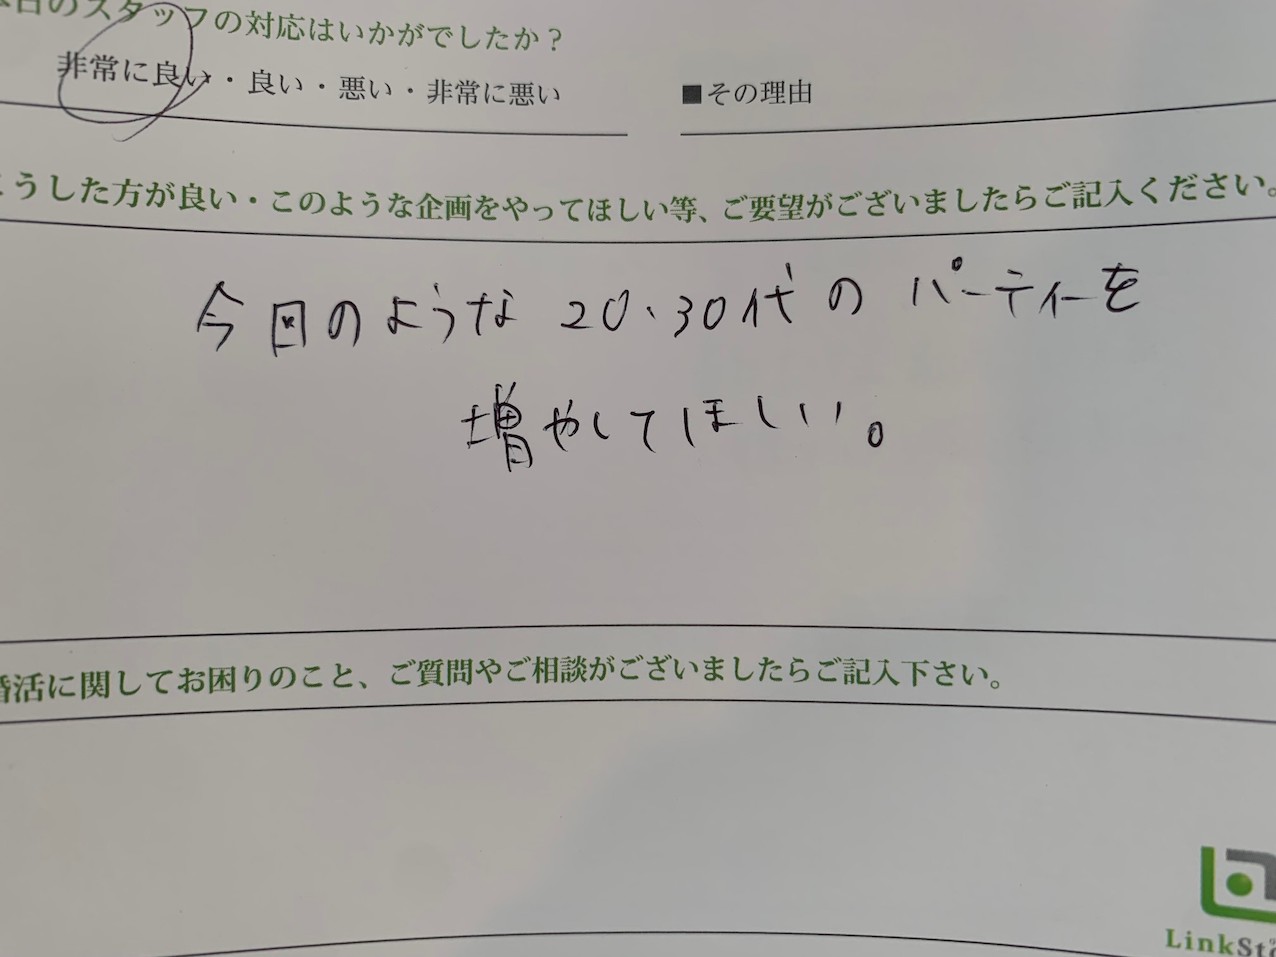 本日のスタッフの対応はいかがでしたか？
非常に良い・良い・悪い・非常に悪い
■その理由
こうした方が良い・このような企画をやってほしい等、ご要望がございましたらご記入ください。
今回のような20、30代のパーティーを
増やしてほしい。
婚活に関してお困りのこと、ご質問やご相談がございましたらご記入下さい。
LinkSta